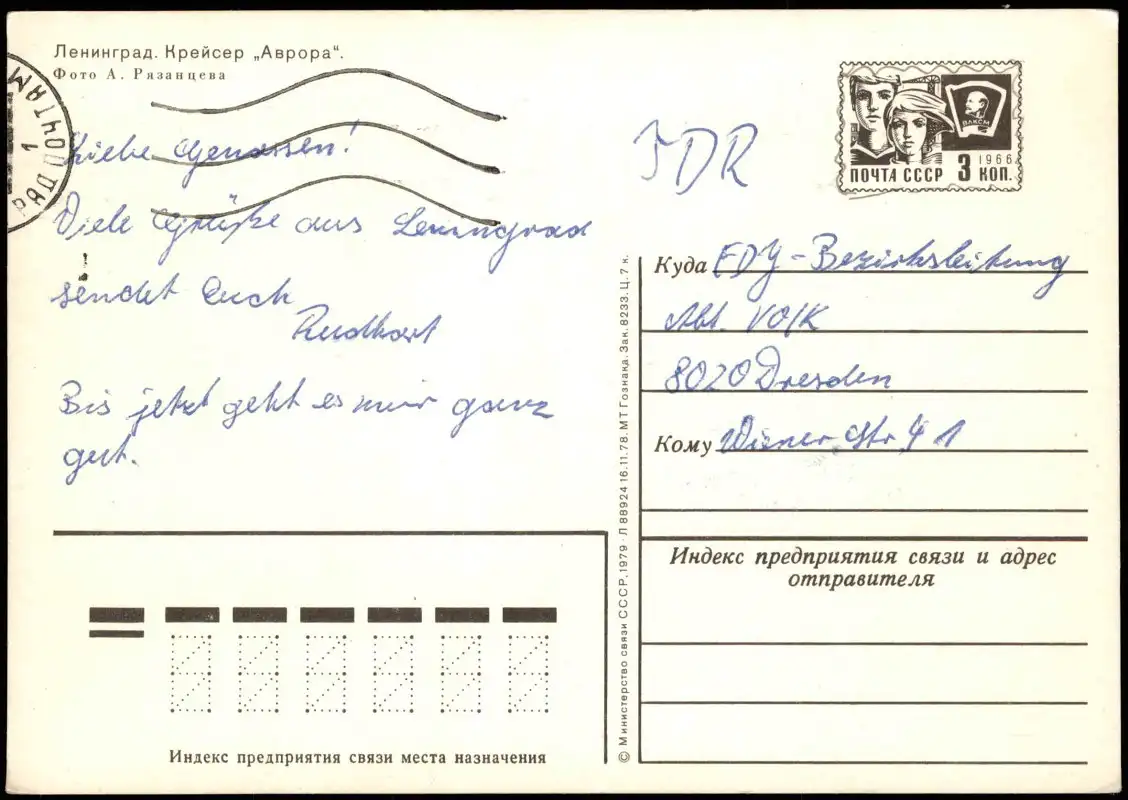 Ленинград. Крейсер „Аврора“.
Фото А. Рязанцева
ПОЧТАМ
1
Liebe Genossen!
Viele Grüße aus Leningrad
sendet Euch
Rudhart
Bis jetzt geht es mir ganz
gut.
Индекс предприятия связи места назначения
© Министерство связи СССР, 1979 · Л 88924 16.11.78. МТ Гознака. Зак. 8233. Ц. 7 к.
DDR
ВЛКСМ
1966
ПОЧТА СССР 3 КОП.
Куда FDJ-Bezirksleitung
Abt. VO/K
8020 Dresden
Кому Wiener Str 41
Индекс предприятия связи и адрес
отправителя